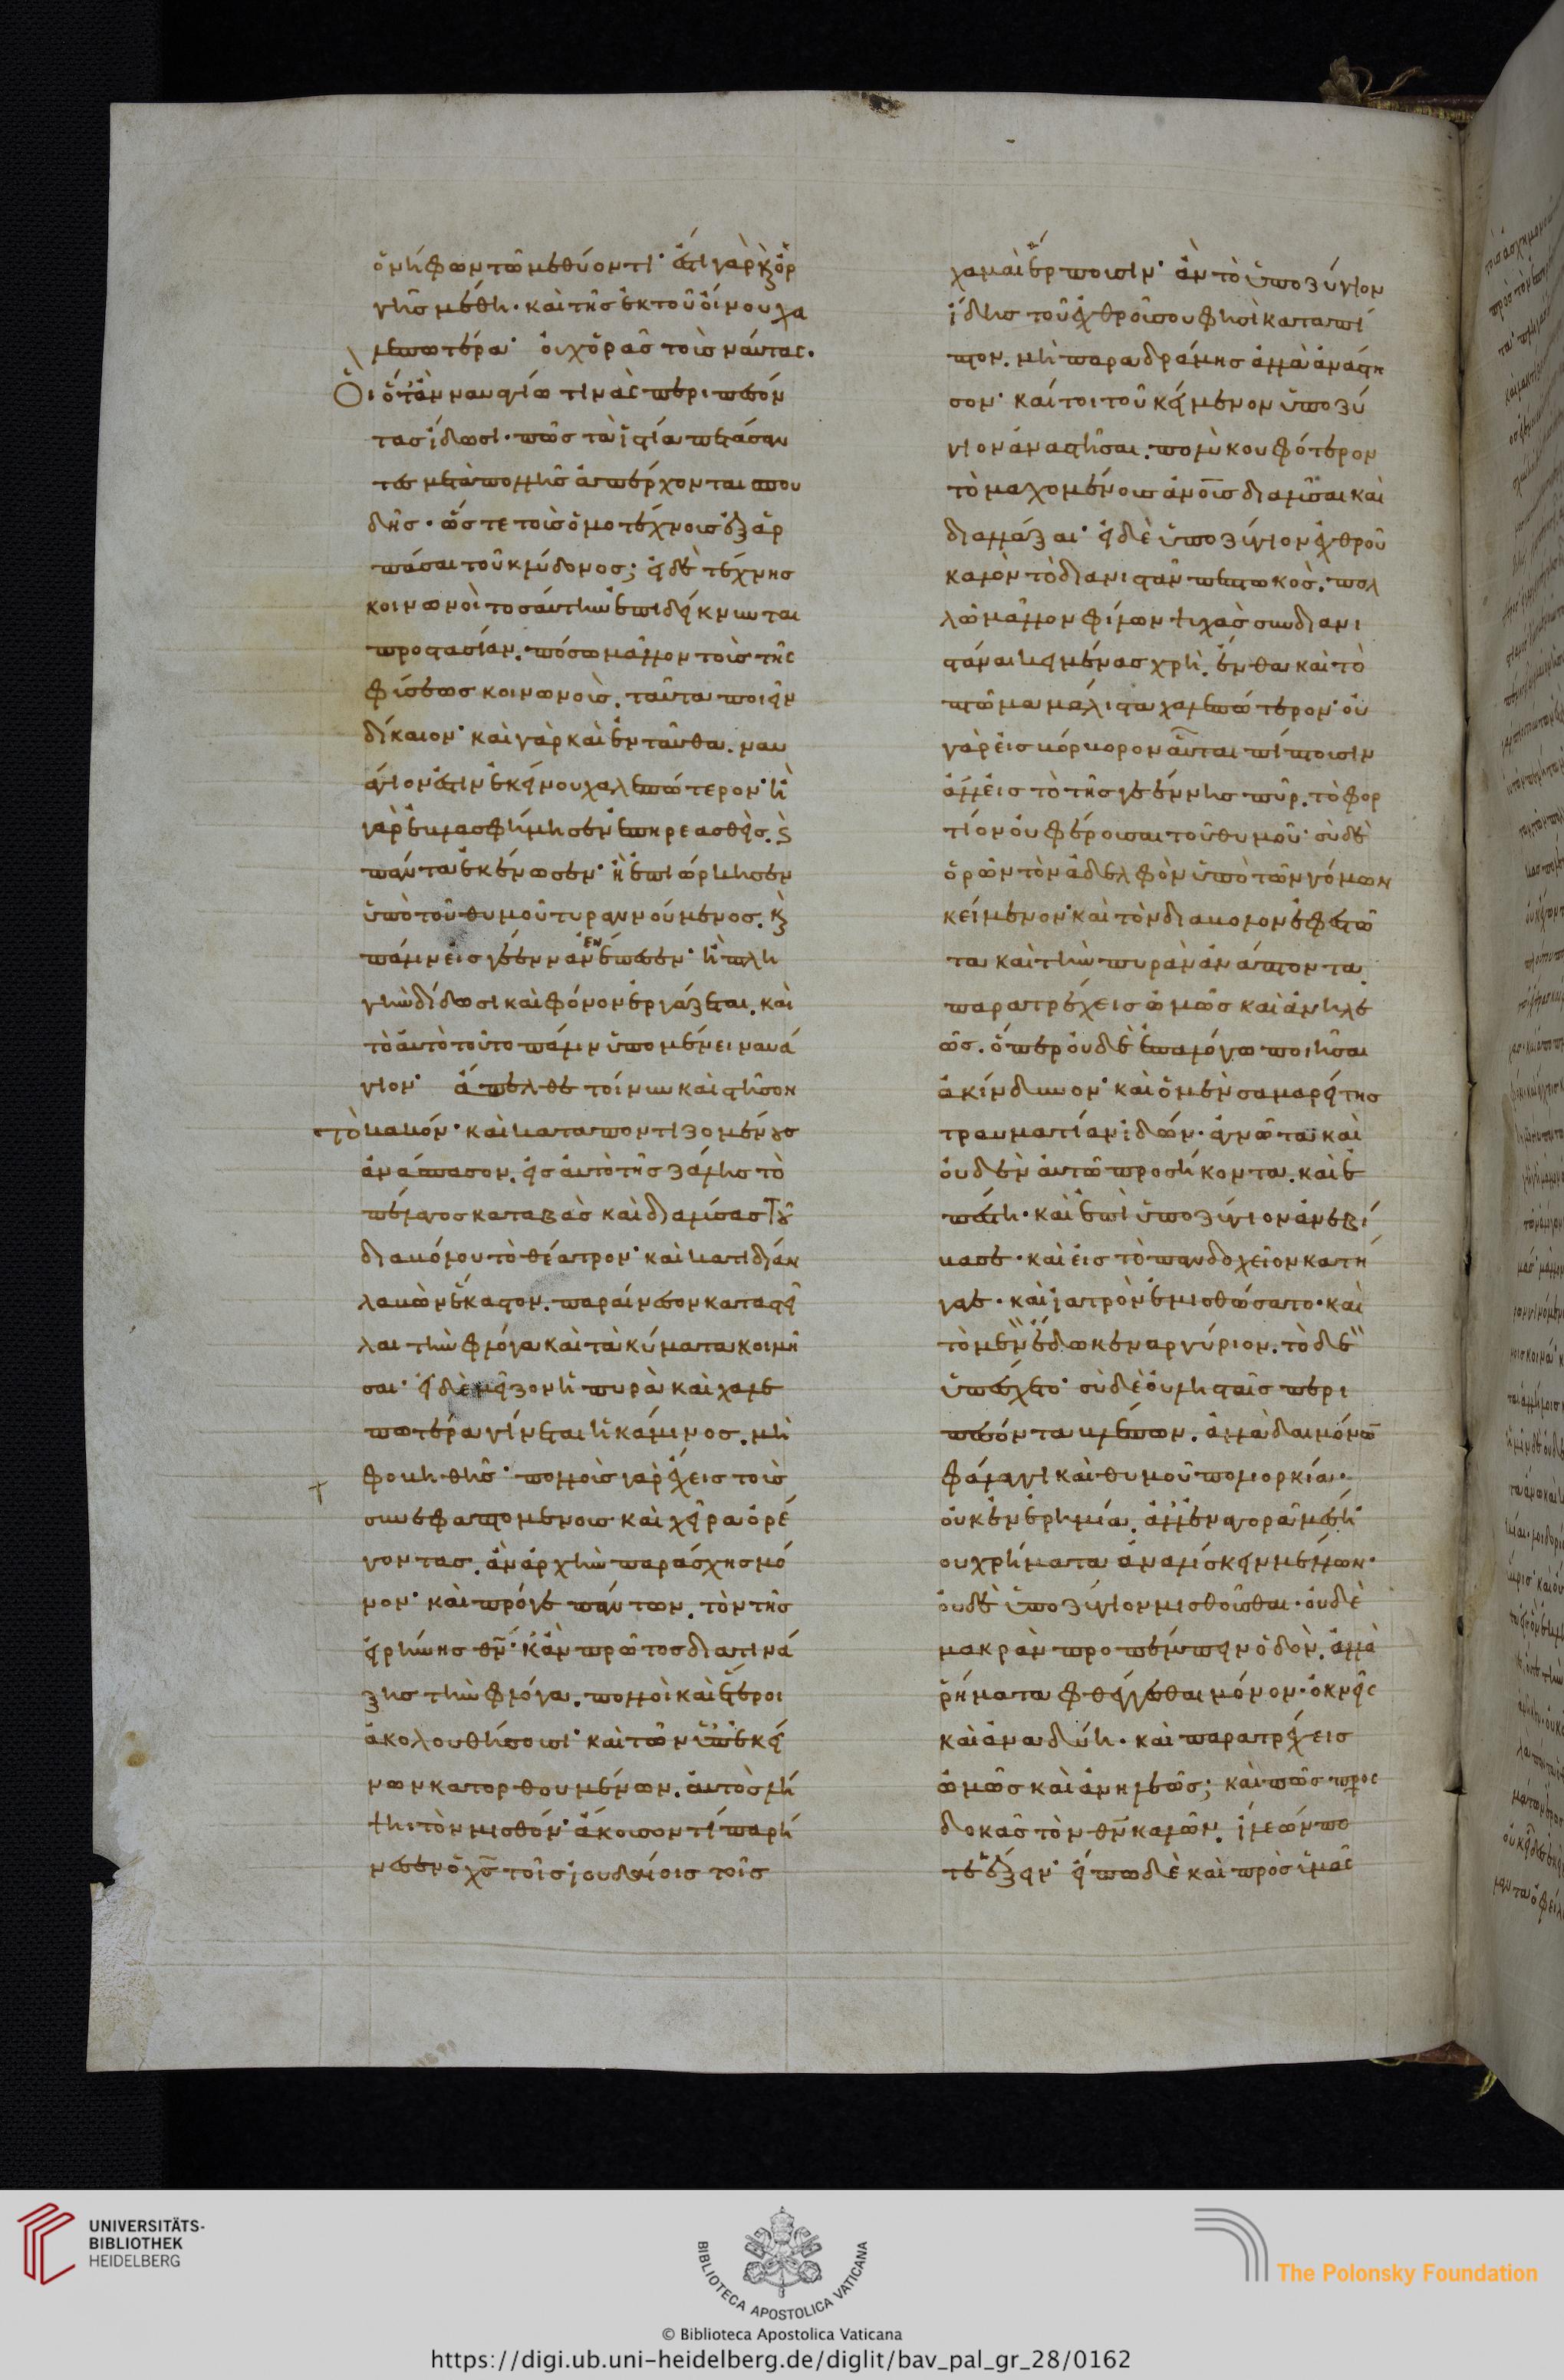 ὁ νήφων τῶ μεθύοντι· ἔστι γὰρ κ ὀρ
γῆς μέθη. καὶ τῆς ἐκ τοῦ οἴνου χα
λεπωτέρα· οὐχ ὁρᾶς τοὺς ναύτας.
Οἳ ὅτ ἂν ναυαγίω τινὰς περιπεσόν
τας ἴδωσι. πῶς τὰ ἱστία πετάσαν
τες μετὰ πολλῆς ἀπέρχονται σπου
δῆς. ὥστε τοὺς ὁμοτέχνους ἐξαρ
πάσαι τοῦ κλύδονος; εἰ δὲ τέχνης
κοινωνοὶ τοσαύτην ἐπιδείκνυνται
προστασίαν. πόσω μᾶλλον τοὺς τῆς
φύσεως κοινωνοὺς. ταῦτα ποιεῖν
δίκαιον· καὶ γὰρ καὶ ἐνταῦθα. ναυ
άγιον ἐστιν ἐκείνου χαλεπώτερον· ἢ
γὰρ ἐβλασφήμησεν ἐπηρεασθεὶς. κ
πάντα ἐκένωσεν· ἢ ἐπιώρκησεν
ὑπὸ τοῦ θυμοῦ τυραννούμενος. κ
πάλιν εἰς γέενναν ἐνέπεσεν· ἢ πλη
γὴν δίδωσι καὶ φόνον ἐργάζεται. καὶ
τὸ αὐτὸ τοῦτο πάλιν ὑπομένει ναυά
γιον· ἄπελθε τοίνυν καὶ στῆσον
τὸ κακόν. καὶ καταποντιζομένους
ἀνάσπασον. εἰς αὐτὸ τῆς ζάλης τὸ
πέλαγος καταβὰς καὶ διαλύσας τοῦ
διαβόλου τὸ θέατρον· καὶ κατιδίαν
λαβὼν ἕκαστον. παραίνεσον καταστεῖ
λαι τὴν φλόγα καὶ τὰ κύματα κοιμῆ
σαι· εἰ δὲ μεῖζον ἡ πυρὰ καὶ χαλε
πωτέρα γίνεται ἡ κάμινος. μὴ
φοβηθῆς· πολλοὺς γὰρ ἔχεις τοὺς
συνεφαπτομένους καὶ χεῖρα ὀρέ
γοντας. ἂν ἀρχὴν παράσχης μό
νον· καὶ πρόγε πάντων. τὸν τῆς
εἰρήνης θν· κἂν πρῶτος διατινά
ξης τὴν φλόγα. πολλοὶ καὶ ἕτεροι
ἀκολουθήσουσι· καὶ τῶν ὑπ ἐκεί
νων κατορθουμένων. αὐτὸς λή
ψη τὸν μισθόν· ἄκουσον τί παρή
νεσεν ὁ χς τοῖς ἰουδαίοις τοῖς
χαμαὶ ἕρπουσιν· ἂν τὸ ὑποζύγιον
ἴδης τοῦ ἐχθροῦ σου φησὶ καταπῖ
πτον. μὴ παραδράμης ἀλλὰ ἀνάστη
σον· καίτοι τοῦ κείμενον ὑποζύ
γιον ἀναστῆσαι. πολὺ κουφότερον
τὸ μαχομένους ἀνους διαλῦσαι καὶ
διαλλάξαι· εἰ δὲ ὑποζύγιον ἐχθροῦ
καλὸν τὸ διανιστᾶν πεπτωκὸς. πολ
λῶ μᾶλλον φίλων ψυχὰς συνδιανι
στάναι κειμένας χρὴ. ἔνθα καὶ τὸ
πτῶμα μάλιστα χαλεπώτερον· οὐ
γὰρ εἰς βόρβορον αὗται πίπτουσιν
ἀλλ εἰς τὸ τῆς γεέννης πῦρ. τὸ φορ
τίον οὐ φέρουσαι τοῦ θυμοῦ· σὺ δὲ
ὁρῶν τὸν ἀδελφὸν ὑπὸ τῶν γόμων
κείμενον· καὶ τὸν διάβολον ἐφεστῶ
τα καὶ τὴν πυρὰν ἀνάπτοντα.
παρατρέχεις ὠμῶς καὶ ἀνηλε
ῶς. ὅπερ οὐδὲ ἐπ ἀλόγω ποιῆσαι
ἀκίνδυνον· καὶ ὁ μὲν σαμαρείτης
τραυματίαν ἰδών. ἀγνῶτα καὶ
οὐδὲν αὐτῶ προσήκοντα. καὶ ἐ
πέστη. καὶ ἐπὶ ὑποζύγιον ἀνεβί
βασε. καὶ εἰς τὸ πανδοχεῖον κατή
γαγε. καὶ ἰατρὸν ἐμισθώσατο. καὶ
τὸ μὲν ἔδωκεν ἀργύριον. τὸ δὲ
ὑπέσχετο· σὺ δὲ οὐ λησταῖς περι
πεσόντα βλέπων. ἀλλὰ δαιμόνων
φάλαγγι καὶ θυμοῦ πολιορκία.
οὐκ ἐν ἐρημία. ἀλλ ἐν ἀγορᾶ μέση
οὐ χρήματα ἀναλίσκειν μέλλων.
οὐδὲ ὑποζύγιον μισθοῦσθαι. οὐδὲ
μακρὰν προπέμπειν ὁδὸν. ἀλλὰ
ῥήματα φθέγγεσθαι μόνον. ὀκνεῖς
καὶ ἀναδύη. καὶ παρατρέχεις
ὠμῶς καὶ ἀνηλεῶς; καὶ πῶς προς
δοκᾶς τὸν θν καλῶν. ἵλεών πο
τε ἕξειν· εἴπω δὲ καὶ πρὸς ὑμᾶς
UNIVERSITÄTS-
BIBLIOTHEK
HEIDELBERG
BIBLIOTECA APOSTOLICA VATICANA
The Polonsky Foundation
© Biblioteca Apostolica Vaticana
https://digi.ub.uni-heidelberg.de/diglit/bav_pal_gr_28/0162